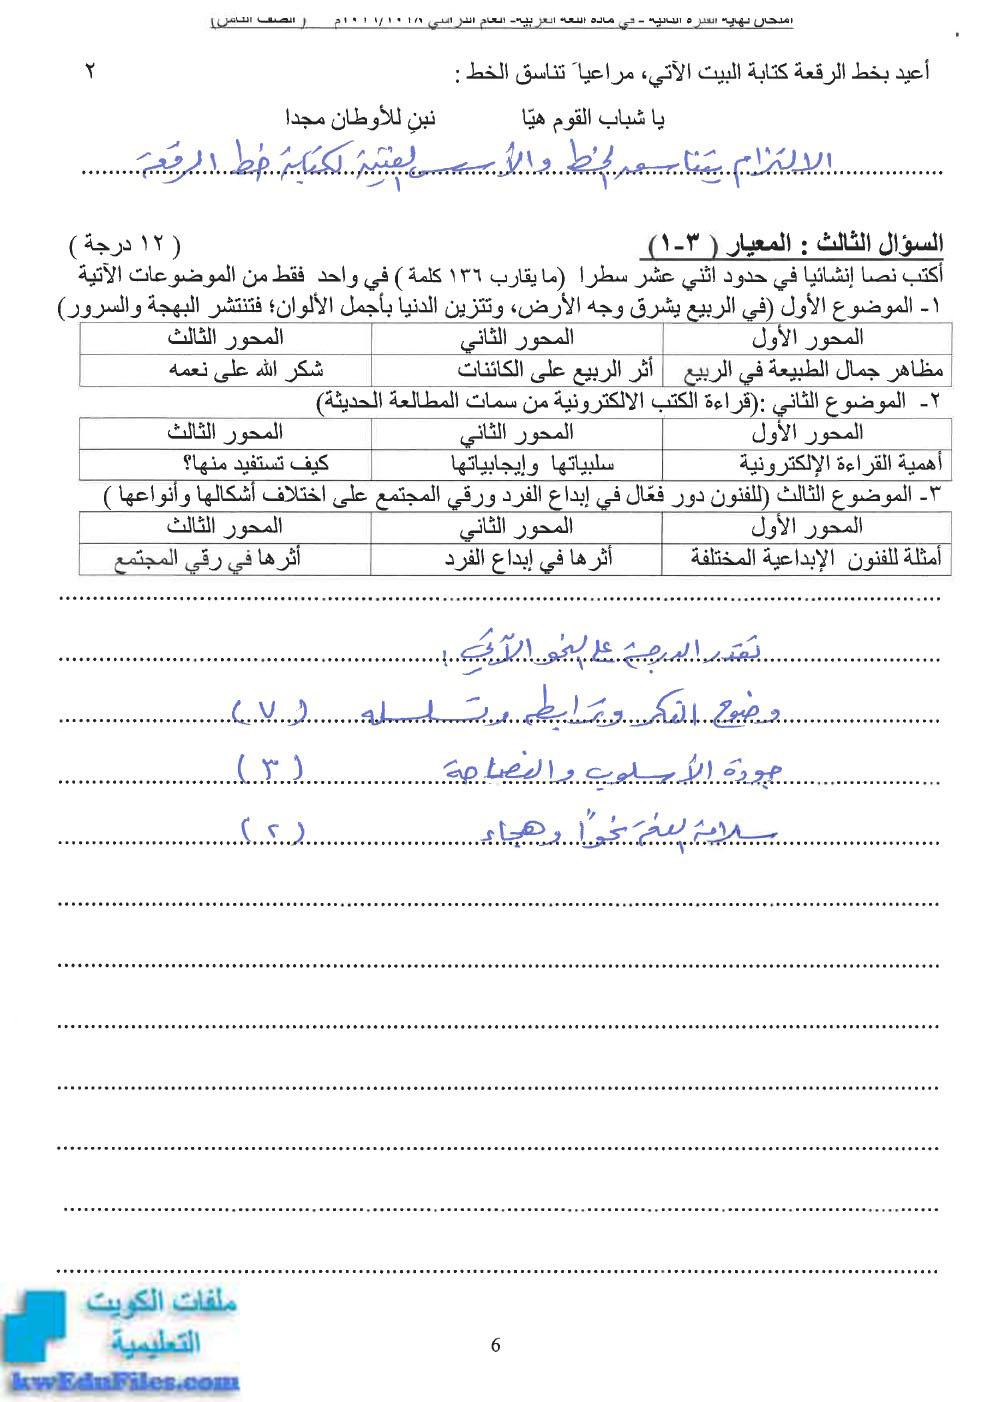 امتحان نهاية الفترة الثانية - في مادة اللغة العربية- العام الدراسي ( الصف الثامن)
أعيد بخط الرقعة كتابة البيت الآتي، مراعياً تناسق الخط : ٢
يا شباب القوم هيّا نبنِ للأوطان مجدا
الالتزام بتناسق الخط والأسس الفنية لكتابة خط الرقعة
السؤال الثالث : المعيار ( ٣-١) ( ١٢ درجة )
أكتب نصا إنشائيا في حدود اثني عشر سطرا (ما يقارب ١٣٦ كلمة ) في واحد فقط من الموضوعات الآتية
١- الموضوع الأول (في الربيع يشرق وجه الأرض، وتتزين الدنيا بأجمل الألوان؛ فتنتشر البهجة والسرور)
المحور الأول المحور الثاني المحور الثالث
مظاهر جمال الطبيعة في الربيع أثر الربيع على الكائنات شكر الله على نعمه
٢- الموضوع الثاني :(قراءة الكتب الالكترونية من سمات المطالعة الحديثة)
المحور الأول المحور الثاني المحور الثالث
أهمية القراءة الإلكترونية سلبياتها وإيجابياتها كيف تستفيد منها؟
٣- الموضوع الثالث (للفنون دور فعّال في إبداع الفرد ورقي المجتمع على اختلاف أشكالها وأنواعها )
المحور الأول المحور الثاني المحور الثالث
أمثلة للفنون الإبداعية المختلفة أثرها في إبداع الفرد أثرها في رقي المجتمع
تقدر الدرجة على النحو الآتي :
وضوح الفكر وترابطه وتسلسله (٧)
جودة الأسلوب والفصاحة (٣)
سلامة اللغة نحوًا وهجاء (٢)
ملفات الكويت
التعليمية
kwEduFiles.com
6